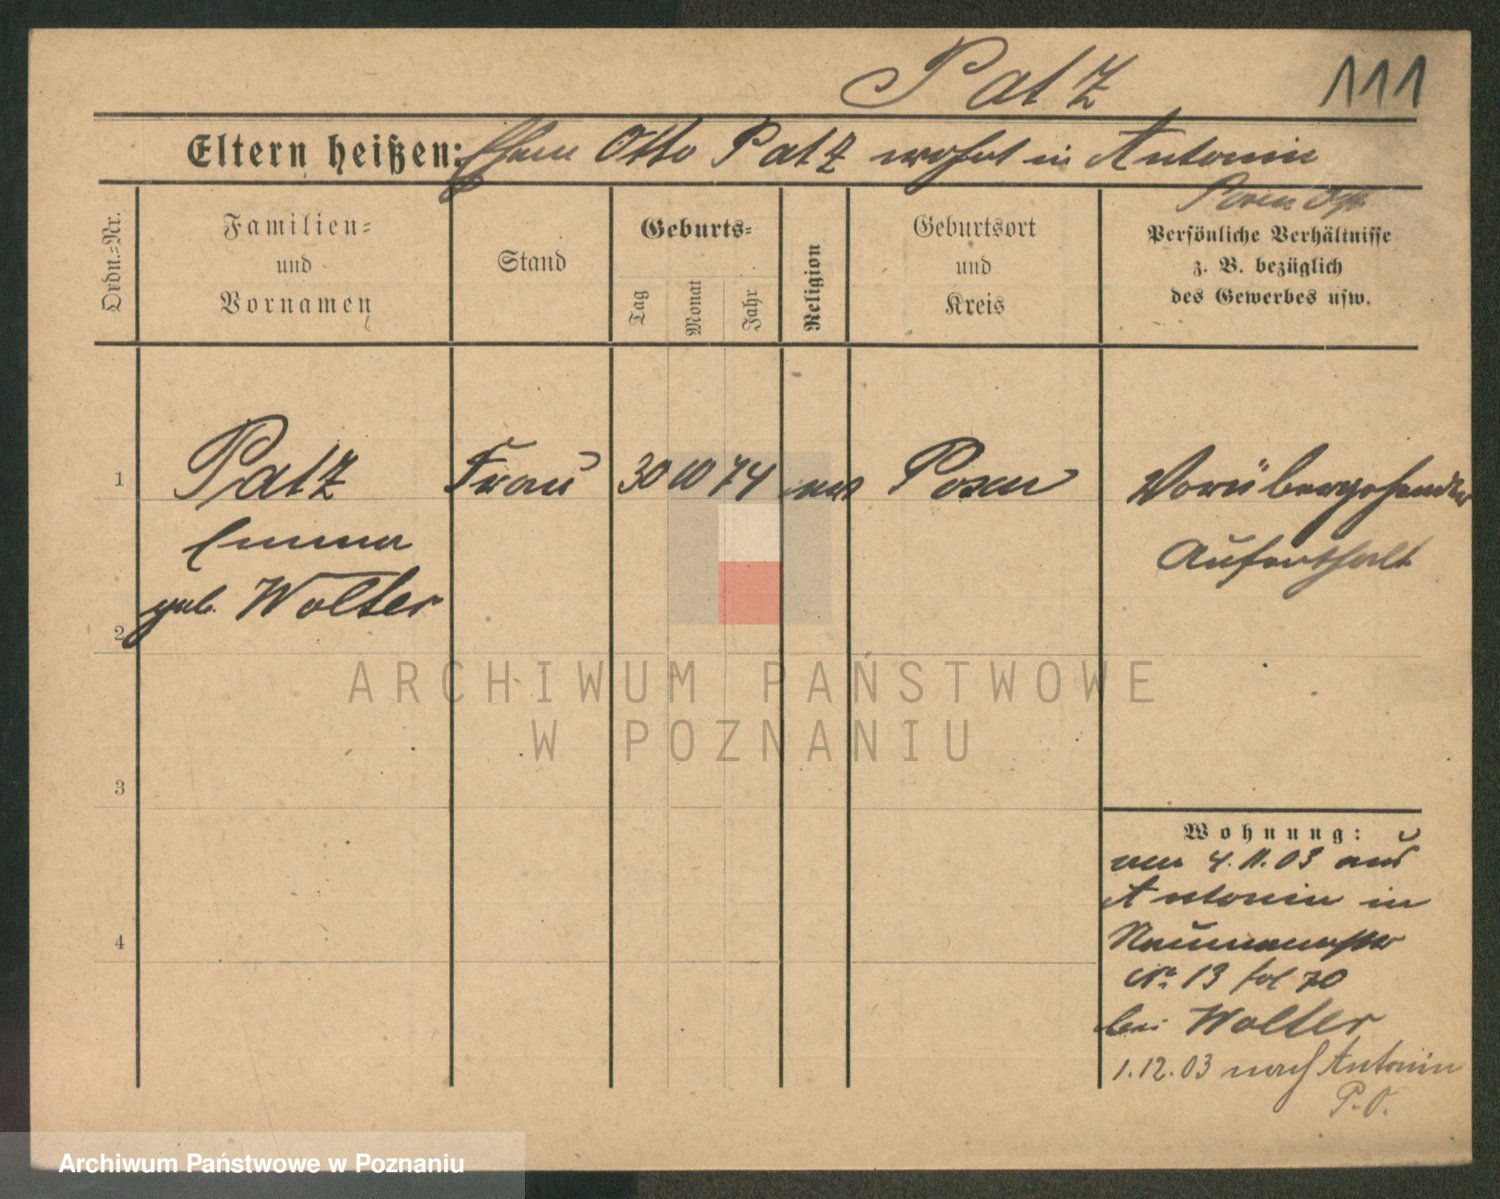 Patz
111
Eltern heißen: Ehem Otto Patz wohnt in Antonin
Posen Ost
Ordn.-Nr.
Familien-
und
Vornamen
Stand
Geburts-
Tag
Monat
Jahr
Religion
Geburtsort
und
Kreis
Persönliche Verhältnisse
z. B. bezüglich
des Gewerbes usw.
1
Patz
Frau
30 10 74
Posen
Vorübergehender
Emma
Aufenthalt
geb. Wolter
2
ARCHIWUM PAŃSTWOWE
W POZNANIU
3
Wohnung:
4. 11. 03 aus
Antonin in
Naumannstr
4
No 13 fol 70
bei Wolter
1.12.03 nach Antonin
P.O.
Archiwum Państwowe w Poznaniu